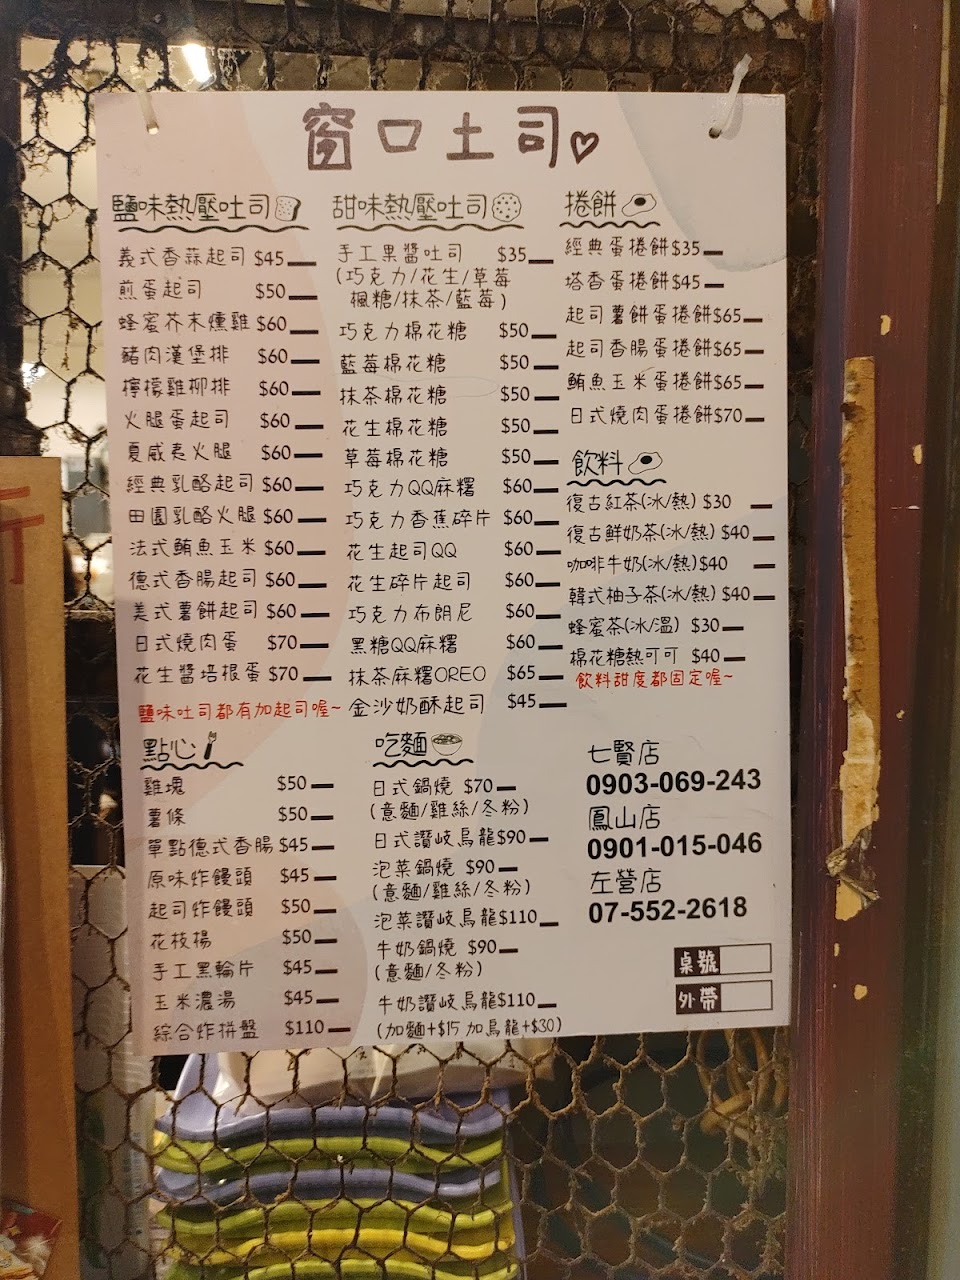 窗口土司
鹽味熱壓吐司
義式香蒜起司 $45
煎蛋起司 $50
蜂蜜芥末燻雞 $60
豬肉漢堡排 $60
檸檬雞柳排 $60
火腿蛋起司 $60
夏威夷火腿 $60
經典乳酪起司 $60
田園乳酪火腿 $60
法式鮪魚玉米 $60
德式香腸起司 $60
美式薯餅起司 $60
日式燒肉蛋 $70
花生醬培根蛋 $70
鹽味吐司都有加起司喔~
甜味熱壓吐司
手工果醬吐司 $35
(巧克力/花生/草莓
楓糖/抹茶/藍莓)
巧克力棉花糖 $50
藍莓棉花糖 $50
抹茶棉花糖 $50
花生棉花糖 $50
草莓棉花糖 $50
巧克力QQ麻糬 $60
巧克力香蕉碎片 $60
花生起司QQ $60
花生碎片起司 $60
巧克力布朗尼 $60
黑糖QQ麻糬 $60
抹茶麻糬OREO $65
金沙奶酥起司 $45
捲餅
經典蛋捲餅$35
塔香蛋捲餅$45
起司薯餅蛋捲餅$65
起司香腸蛋捲餅$65
鮪魚玉米蛋捲餅$65
日式燒肉蛋捲餅$70
飲料
復古紅茶(冰/熱) $30
復古鮮奶茶(冰/熱) $40
咖啡牛奶(冰/熱)$40
韓式柚子茶(冰/熱) $40
蜂蜜茶(冰/溫) $30
棉花糖熱可可 $40
飲料甜度都固定喔~
點心
雞塊 $50
薯條 $50
單點德式香腸 $45
原味炸饅頭 $45
起司炸饅頭 $50
花枝楊 $50
手工黑輪片 $45
玉米濃湯 $45
綜合炸拼盤 $110
吃麵
日式鍋燒 $70
(意麵/雞絲/冬粉)
日式讚岐烏龍$90
泡菜鍋燒 $90
(意麵/雞絲/冬粉)
泡菜讚岐烏龍$110
牛奶鍋燒 $90
(意麵/冬粉)
牛奶讚岐烏龍$110
(加麵+$15 加烏龍+$30)
七賢店
0903-069-243
鳳山店
0901-015-046
左營店
07-552-2618
桌號
外帶